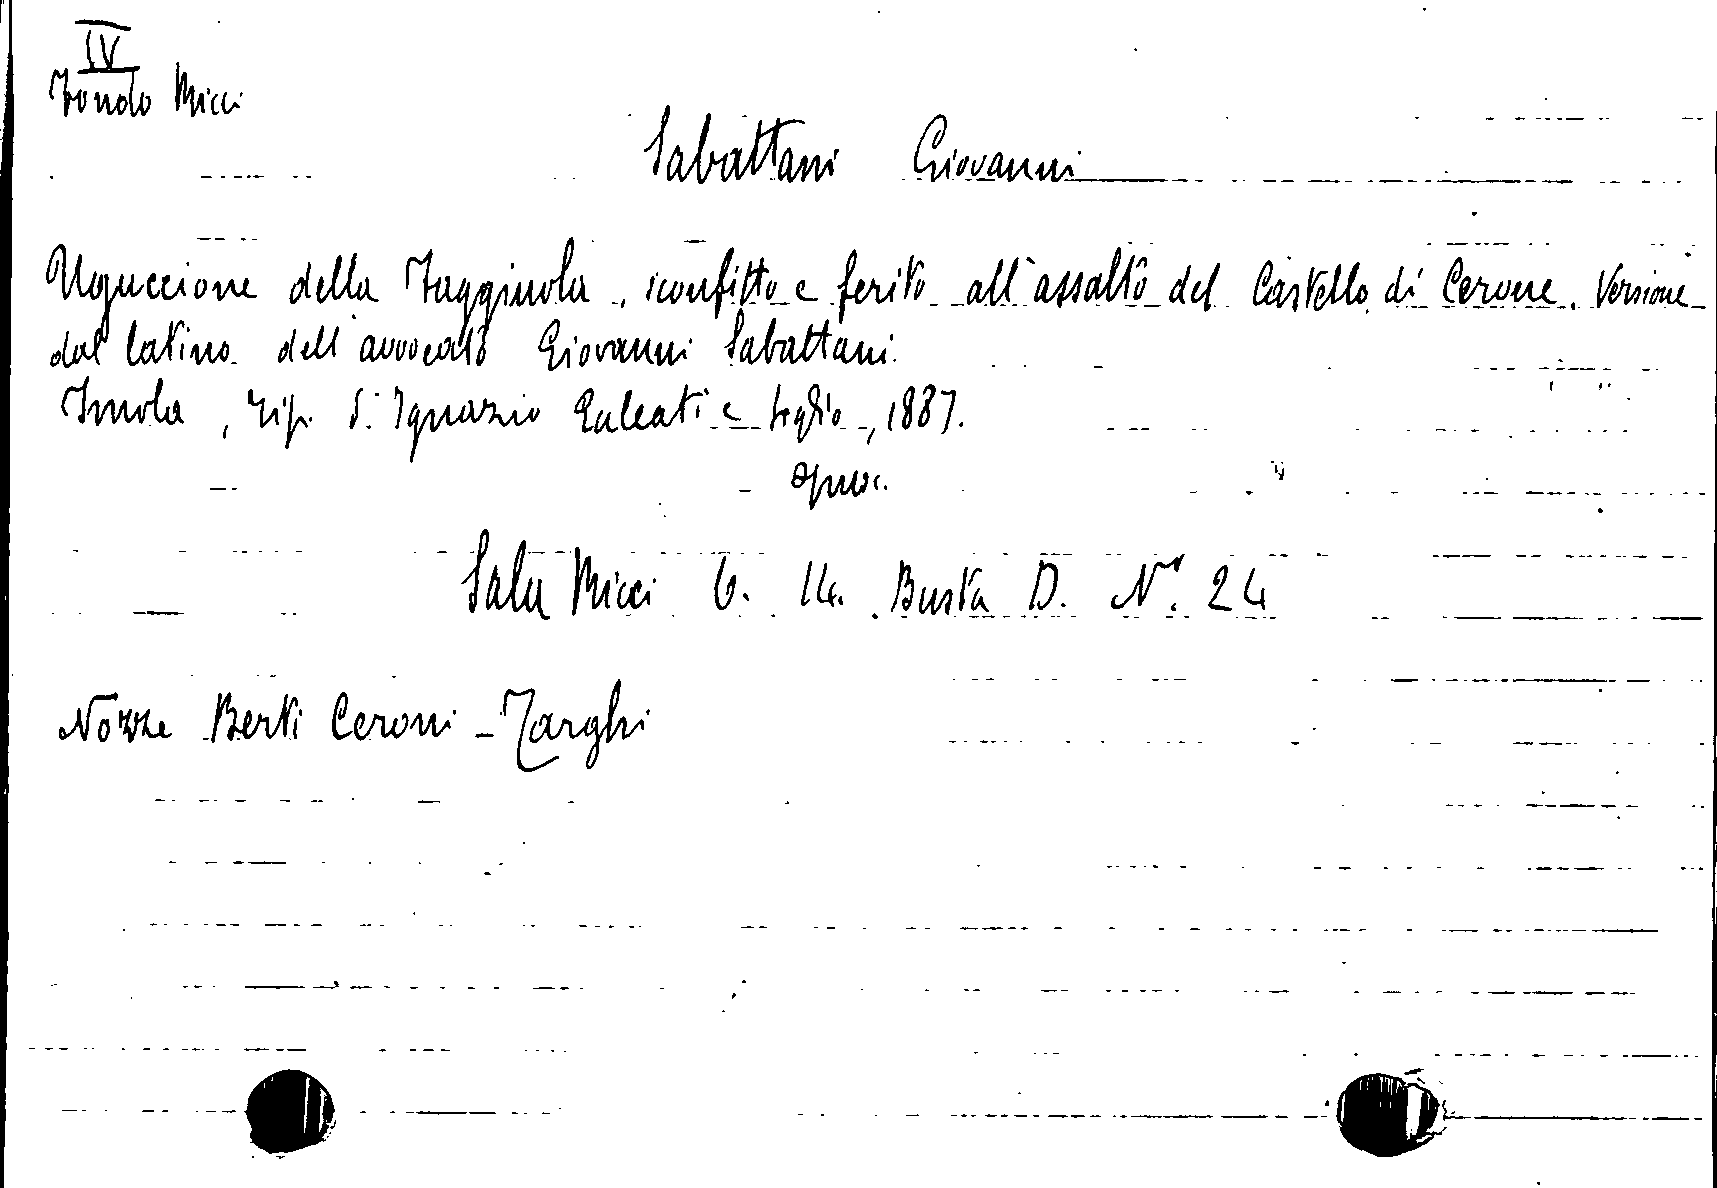 IV
Fondo Micci
Sabattani Giovanni
Uguccione della Faggiuola, sconfitto e ferito all'assalto del Castello di Cerone. Versione
dal latino dell'avvocato Giovanni Sabattani.
Imola, Tip. d'Ignazio Galeati e figlio, 1887.
opusc.
Sala Micci 6. 14. Busta D. N. 24
Nozze Berti Ceroni - Zarghi